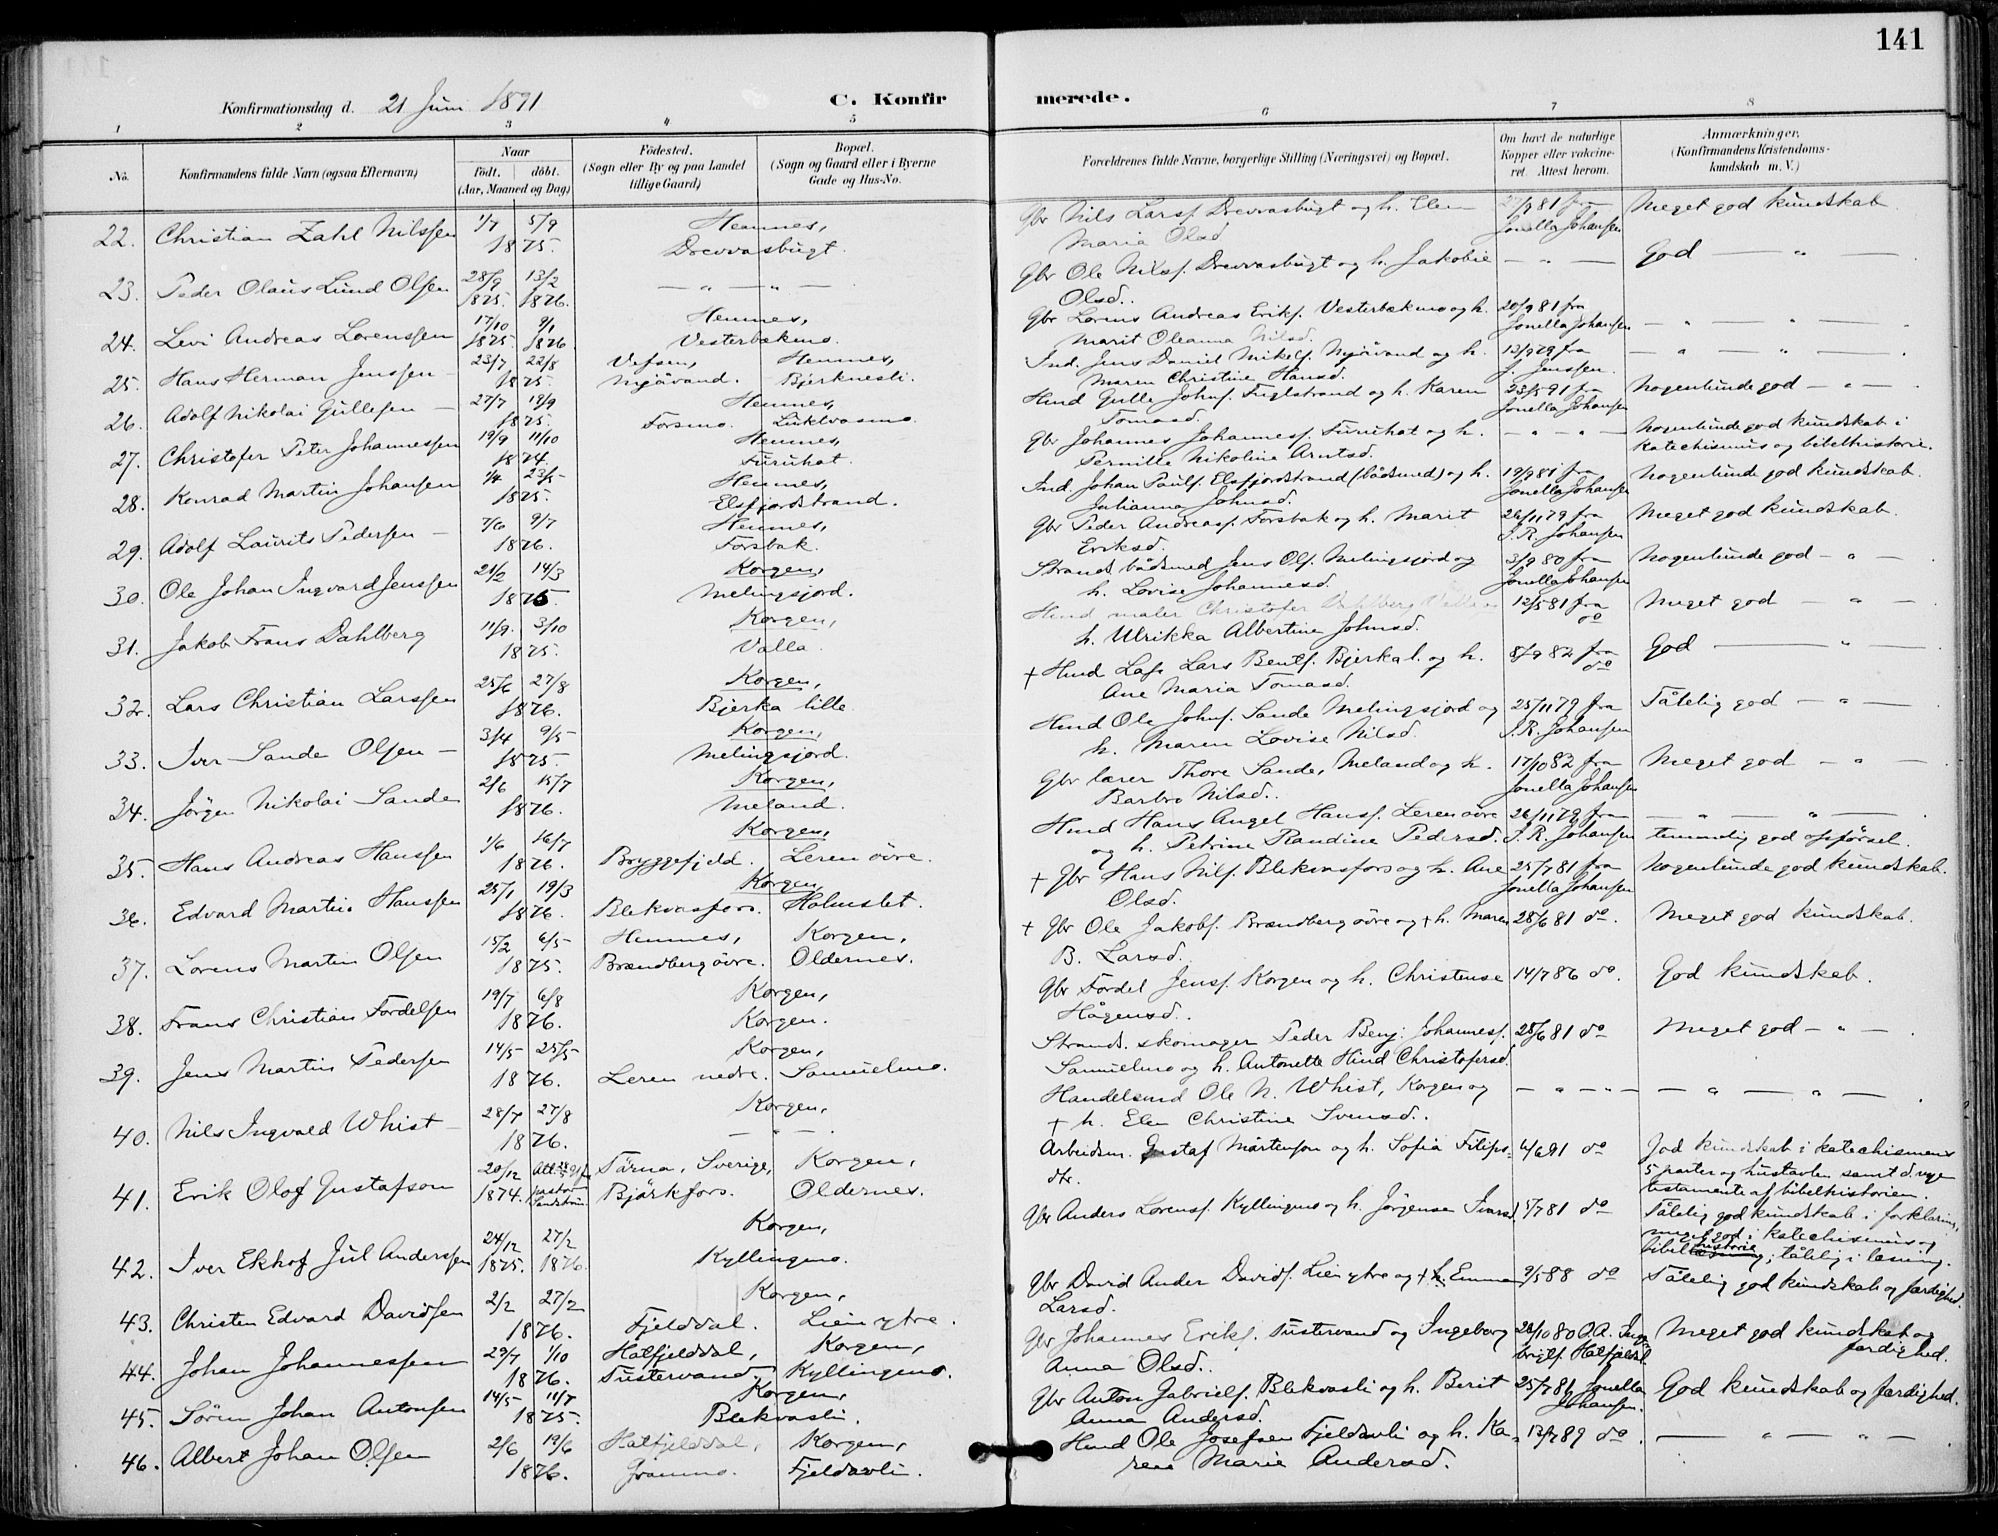 141
Konfirmationsdag d. 21 Juni 1891 C. Konfirmerede.
1 2 3 4 5 6 7 8
No. Konfirmandens fulde Navn (ogsaa Efternavn) Naar födt. döbt. (Aar, Maaned og Dag) Födested. (Sogn eller By og paa Landet tillige Gaard) Bopæl. (Sogn og Gaard eller i Byerne Gade og Hus-No. Forældrenes fulde Navne, borgerlige Stilling (Næringsvei) og Bopæl. Om havt de naturlige Kopper eller vakcineret. Attest herom. Anmærkninger. (Konfirmandens Kristendomskundskab m. V.)
22. Christian Zahl Nilssen 1/7 5/9 1875. Hemnes, Drevvasbugt. Gbr Nils Larsf. Drevvasbugt og h. Elen Maria Olsd. 27/9 81 fra Jonella Johansen Meget god kundskab
23. Peder Olaus Lund Olsen 28/9 1875. 13/2 1876. — " — " — Gbr Ole Nilsf. Drevvasbugt og h. Jakobie Olsd. — " — God — " —
24. Levi Andreas Lorenssen 17/10 1875 9/1 1876 Hemnes, Vesterbækmo. Gbr Lorens Andreas Eriks. Vesterbækmo og h. Marit Oleanna Nilsd. 20/9 81 fra Jonella Johansen — " — " —
25. Hans Herman Jenssen 23/7 22/8 1875. Vefsen, Mjåvand. Hemnes, Bjerknesli. Ind. Jens Daniel Mikelf. Mjåvand og h. Maren Christine Hansd. 13/9 79 fra J. Jenssen. — " — " —
26. Adolf Nikolai Gullesen 27/7 19/9 1875. Hemnes, Forsmo. Luktvasmo. Hmd Gulle Johnf. Fuglstrand og h. Karen Tomasd. 23/5 91 fra Jonella Johansen Nogenlunde god — " —
27. Christofer Peter Johannessen 19/9 11/10 1874. Hemnes, Furuhat. Gbr Johannes Johannesf. Furuhat og h. Pernille Nikoline Arntsd. — " — " — Nogenlunde god kundskab i katechismus og bibelhistorie.
28. Konrad Martin Johansen 1/4 23/5 1875. Hemnes, Elsfjordstrand. Ind. Johan Paulf. Elsfjordstrand (bådsmd) og h. Julianna Johnsd. 19/9 81 fra Jonella Johansen Nogenlunde god kundskab.
29. Adolf Laurits Pedersen 7/6 9/7 1876. Hemnes, Forsbak. Gbr Peder Andreasf. Forsbak og h. Marit Eriksd. 26/11 79 fra J. R. Johansen Meget god kundskab.
30. Ole Johan Ingvard Jenssen 21/2 14/3 1875. Korgen, Melingsjord. Strands. bådsmed Jens Olf. Melingsjord og h. Lovise Johannesd. 3/9 80 fra Jonella Johansen Nogenlunde god — " —
31. Jakob Frans Dahlberg 11/9. 3/10 1875. Korgen, Valla. Hmd maler Christofer Dahlberg Valla og h. Ulrikka Albertine Johnsd. 12/5 81 fra do Meget god — " —
32. Lars Christian Larssen 25/6 27/8 1876. Korgen, Bjerka lille † Hmd Lars Bentf. Bjerka l. og h. Ane Maria Tomasd. 8/9 82 fra do God — " —
33. Iver Sande Olsen 3/4 9/5 1875. Korgen, Melingsjord. Hmd Ole Johnf. Sande Melingsjord og h. Maren Lovise Nilsd. 25/11 79 fra J. R. Johansen Tålelig god — " —
34. Jörgen Nikolai Sande 2/6 15/7 1876. Korgen, Meland. Gbr lærer Thore Sande, Meland og h. Barbro Nilsd. 17/10 82 fra Jonella Johansen Meget god — " —
35. Hans Andreas Hanssen 1/6 16/7 1876. Korgen, Bryggefjeld. Leren övre. Hmd Hans Angel Hansf. Leren övre og h. Petrine Randine Pedersd. 26/11 79 fra J. R. Johansen — " — " — temmelig god opförsel.
36. Edvard Martin Hanssen 25/1 19/3 1876. Korgen, Blekvasfors. Holmslet. † Gbr Hans Nilf. Blekvasfors og h. Ane Olsd. 25/7 81 fra Jonella Johansen Nogenlunde god kundskab.
37. Lorens Martin Olsen 15/2 6/5 1875. Hemnes, Brændberg övre. Korgen, Oldernes. † Gbr Ole Jakobf. Brændberg övre og † h. Maren B. Larsd. 28/6 81 do. Meget god kundskab.
38. Frans Christian Fordelsen 19/7 6/8 1876. Korgen, Korgen. Gbr Fordel Jensf. Korgen og h. Christense Hågensd. 14/7 86 do. God kundskab.
39. Jens Martin Pedersen 14/5 25/5 1876. Korgen, Leren nedre. Samuelmo. Strands. skomager Peder Benj. Johannesf. Samuelmo og h. Antonette Hind Christofersd. 28/6 81 do Meget god — " —
40. Nils Ingvald Whist 28/7 27/8 1876. Korgen, — " — Handelsmd Ole N. Whist, Korgen og † h. Elen Christine Svensd. — " — " — — " — " —
41. Erik Olof Gustafson 20/12 1874. Tärna, Sverige, Björkfors. Korgen, Oldernes. Arbeidsm. Gustaf Mårtenson og h. Sofia Filipsdtr. 4/6 91 do God kundskab i katechismens 5 parter og hustavlen samt d. nye testamente af bibelhistorien.
42. Iver Ekhof Jul Anderssen 24/12 1875. 27/2 1876. Korgen, Kyllingmo. Gbr Anders Lorensf. Kyllingmo og h. Jörgense Ivarsd. 5/7 81 do Tålelig god kundskab i forklaring, meget god i katechismus og bibelhistorie, tålelig i læsning.
43. Christen Edvard Davidsen 2/2 27/2 1876. Korgen, Fjelddal. Lien ytre. Gbr David Ander Davidf. Lien ytre og † h. Emma Larsd. 9/5 88 do Tålelig god kundskab og færdighed.
44. Johan Johannessen 29/7 1/10 1876. Hatfjelddal, Tustervand. Korgen, Kyllingmo. Gbr Johannes Erikf. Tustervand og Ingeborg Anna Olsd. 28/10 80 O. A. Ingebrigtf. Hatfjeldd. Meget god kundskab og færdighed.
45. Sören Johan Antonsen 14/5 11/7 1875. Korgen, Blekvasli. Gbr Anton Gabrielf. Blekvasli og h. Berit Anna Andersd. 25/7 81 Jonella Johansen. God kundskab og færdighed.
46. Albert Johan Olsen 2/6 19/6 1876. Hatfjelddal, Granmo. Korgen, Fjeldavli. Hmd Ole Josefsen Fjeldavli og h. Karene Marie Andersd. 13/7 89 do. — " — " —